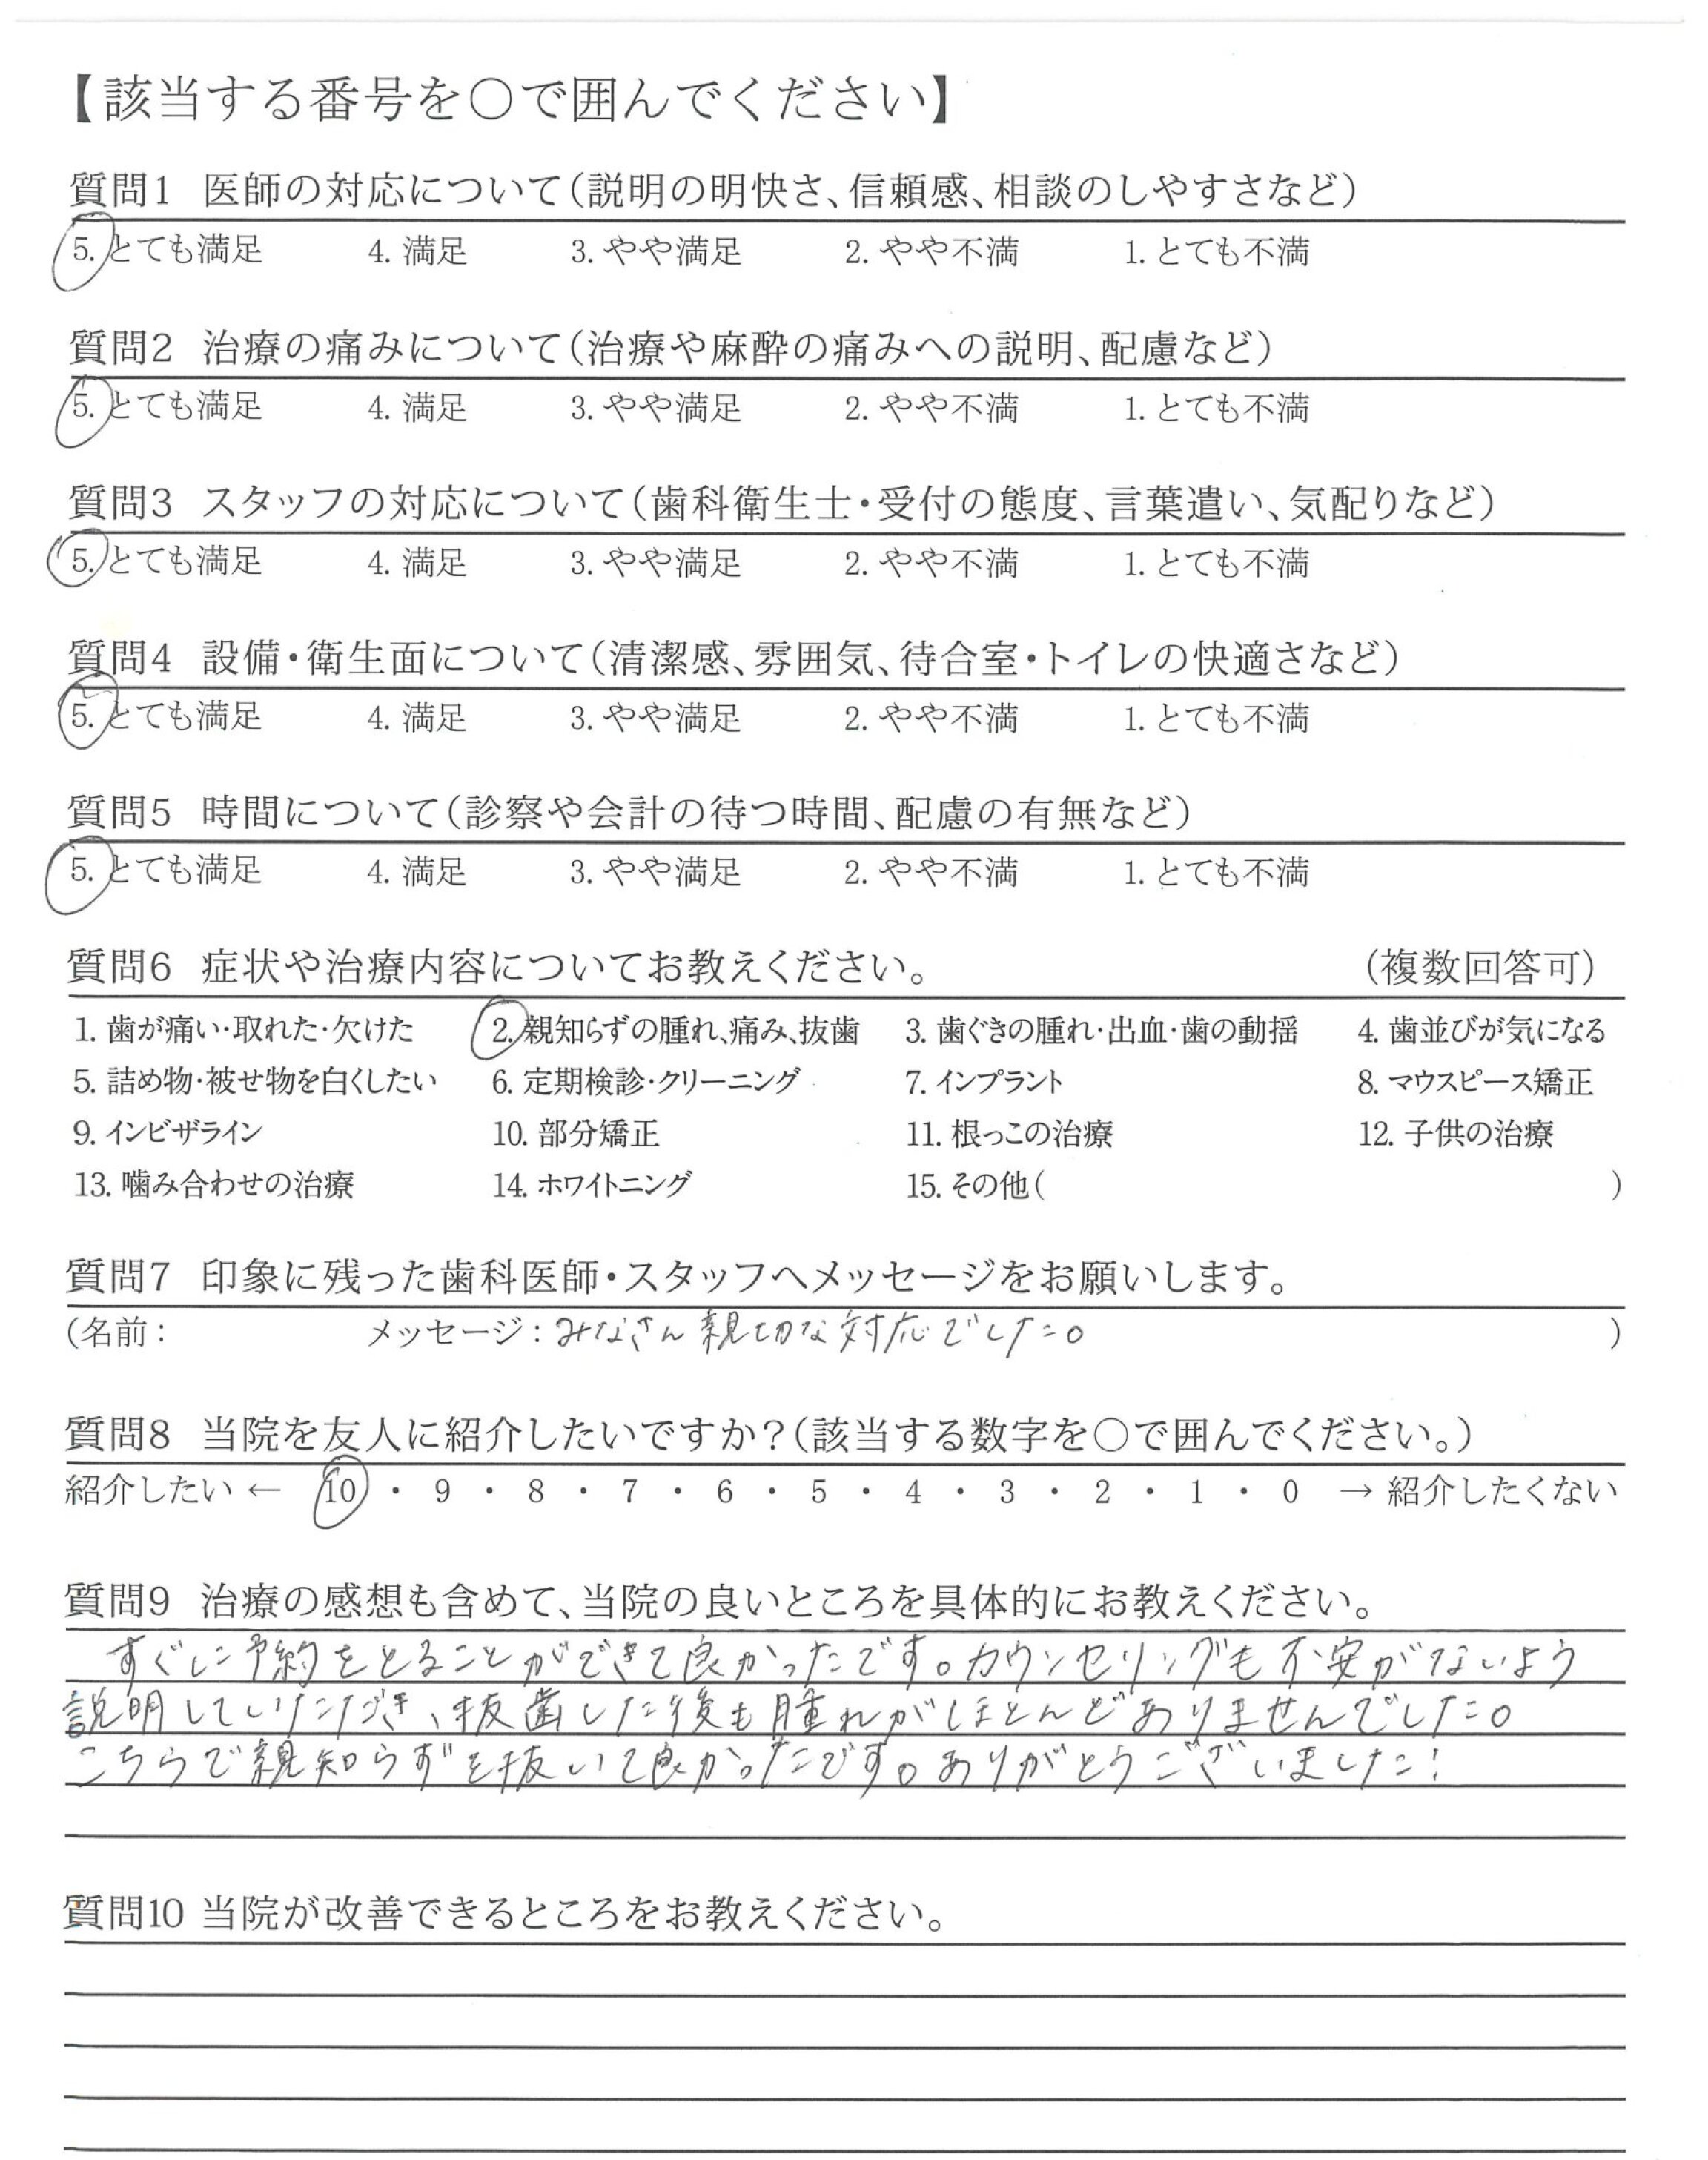 【該当する番号を○で囲んでください】
質問1 医師の対応について(説明の明快さ、信頼感、相談のしやすさなど)
5. とても満足 4. 満足 3. やや満足 2. やや不満 1. とても不満
質問2 治療の痛みについて(治療や麻酔の痛みへの説明、配慮など)
5. とても満足 4. 満足 3. やや満足 2. やや不満 1. とても不満
質問3 スタッフの対応について(歯科衛生士・受付の態度、言葉遣い、気配りなど)
5. とても満足 4. 満足 3. やや満足 2. やや不満 1. とても不満
質問4 設備・衛生面について(清潔感、雰囲気、待合室・トイレの快適さなど)
5. とても満足 4. 満足 3. やや満足 2. やや不満 1. とても不満
質問5 時間について(診察や会計の待つ時間、配慮の有無など)
5. とても満足 4. 満足 3. やや満足 2. やや不満 1. とても不満
質問6 症状や治療内容についてお教えください。 (複数回答可)
1. 歯が痛い・取れた・欠けた 2. 親知らずの腫れ、痛み、抜歯 3. 歯ぐきの腫れ・出血・歯の動揺 4. 歯並びが気になる
5. 詰め物・被せ物を白くしたい 6. 定期検診・クリーニング 7. インプラント 8. マウスピース矯正
9. インビザライン 10. 部分矯正 11. 根っこの治療 12. 子供の治療
13. 噛み合わせの治療 14. ホワイトニング 15. その他( )
質問7 印象に残った歯科医師・スタッフへメッセージをお願いします。
(名前: メッセージ: みなさん親切な対応でした。 )
質問8 当院を友人に紹介したいですか?(該当する数字を○で囲んでください。)
紹介したい ← 10 ・ 9 ・ 8 ・ 7 ・ 6 ・ 5 ・ 4 ・ 3 ・ 2 ・ 1 ・ 0 → 紹介したくない
質問9 治療の感想も含めて、当院の良いところを具体的にお教えください。
すぐに予約をとることができて良かったです。カウンセリングも不安がないよう
説明していただき、抜歯した後も腫れがほとんどありませんでした。
こちらで親知らずを抜いて良かったです。ありがとうございました!
質問10 当院が改善できるところをお教えください。